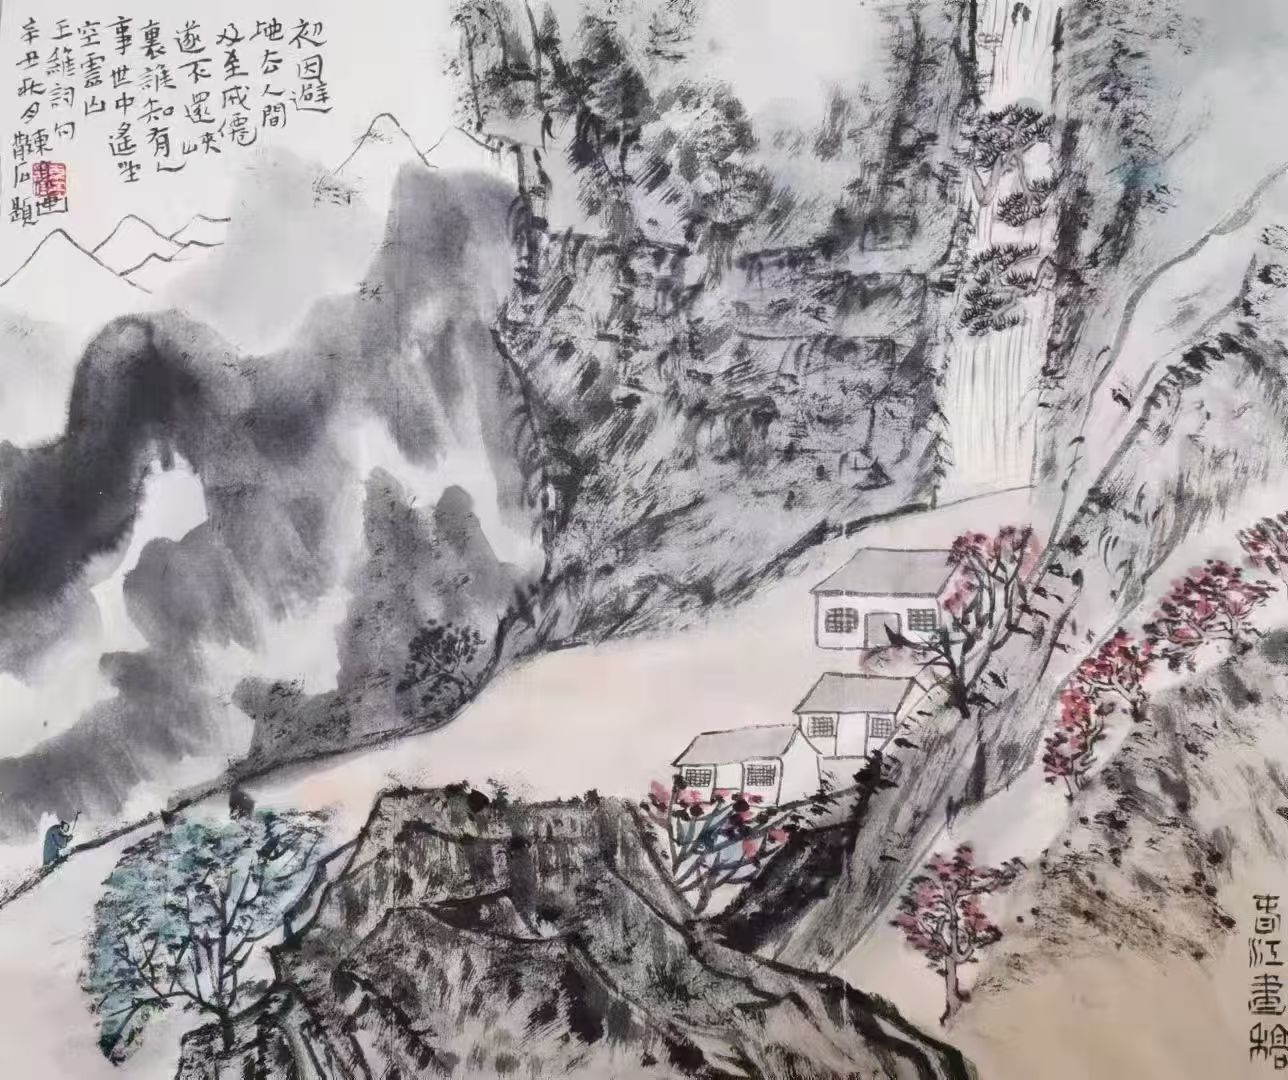 初因避
地去人間
及至成僊
遂不還峽
裏誰知有人
事世中遙望
空雲山
王維詞句
辛丑秋月
石題
春江畫稿